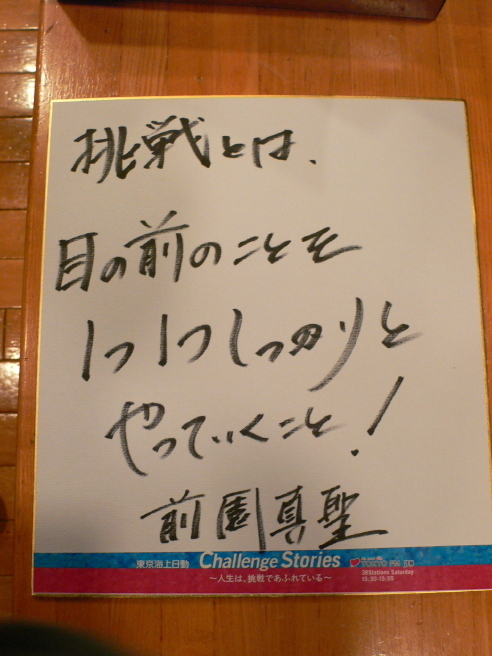 挑戦とは、
目の前のことを
1つ1つしっかりと
やっていくこと!
前園真聖
東京海上日動 Challenge Stories
〜人生は、挑戦であふれている〜
TOKYO FM
38Stations Saturday